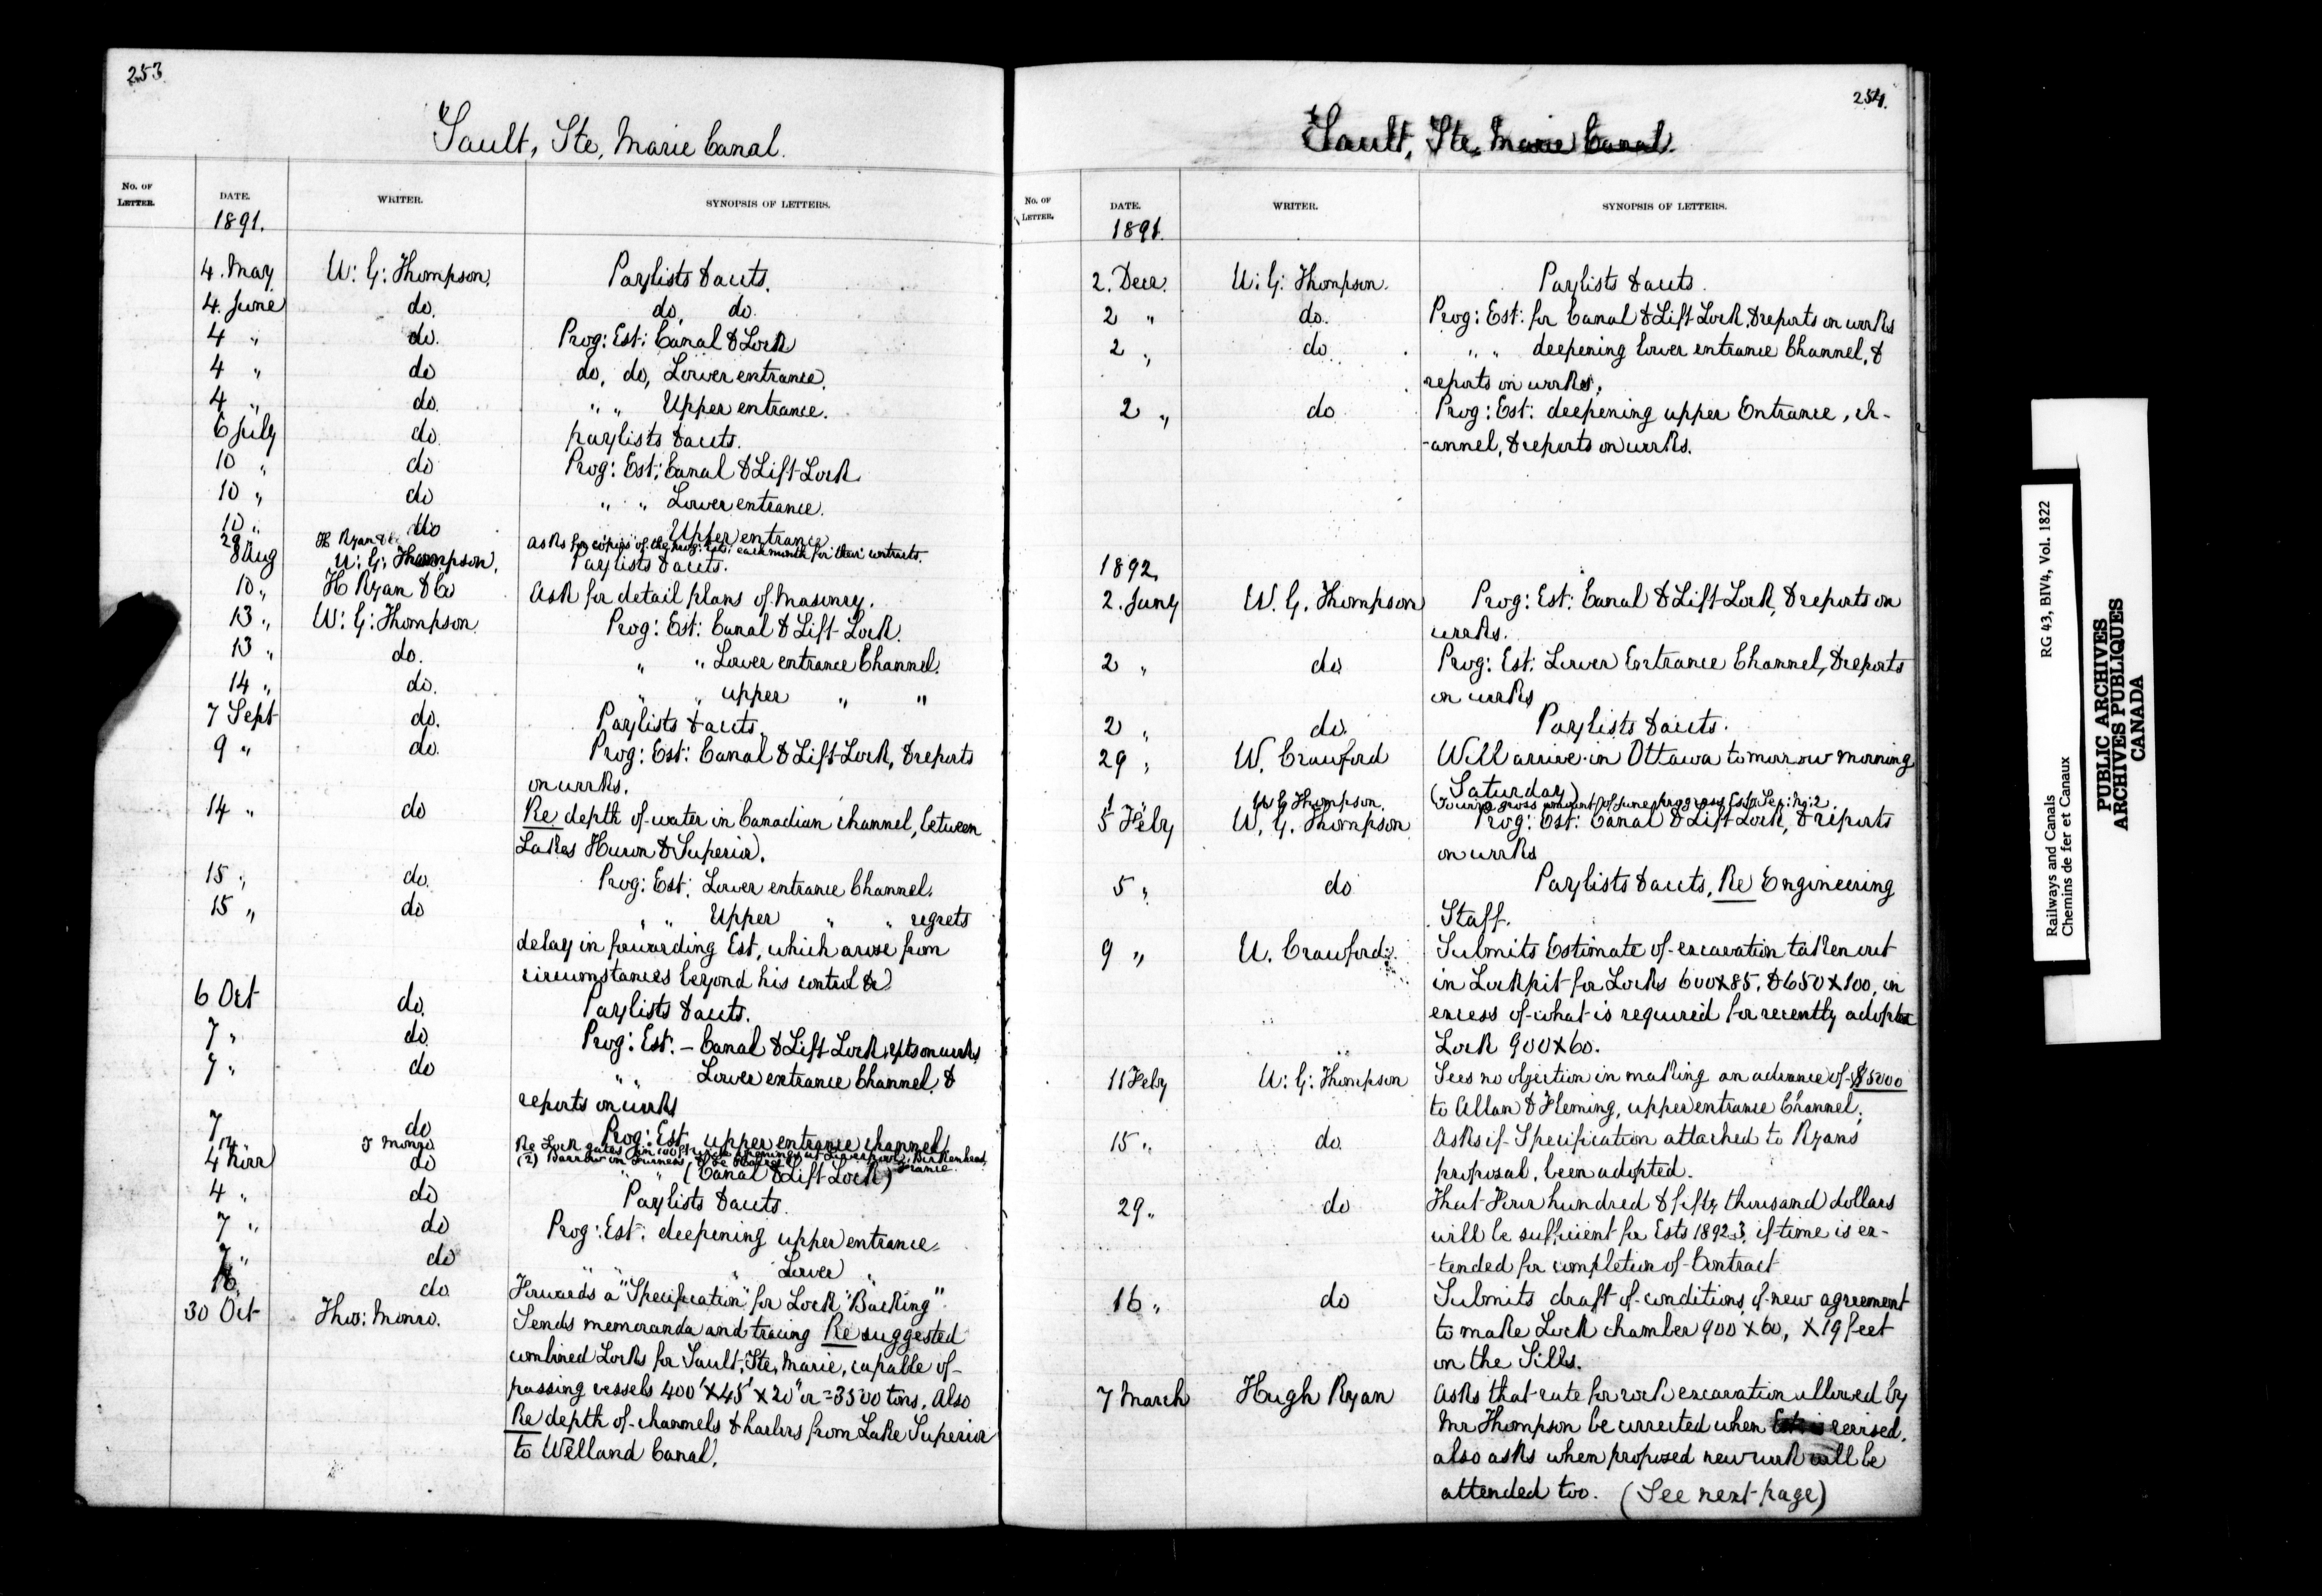 253
Sault, Ste, Marie Canal.
No. OF LETTER. DATE. WRITER. SYNOPSIS OF LETTERS.
1891.
4. May W: G: Thompson. Paylists & accts.
4. June do. do, do.
4 " do. Prog: Est: Canal & Lock
4 " do do, do, Lower entrance.
4 " do. " " Upper entrance.
6 July do. paylists & accts.
10 " do Prog: Est: Canal & Lift Lock
10 " do " " Lower entrance.
10 " do Upper entrance
29 " H Ryan & Co asks for copies of the prog: Ests: each month for their contracts.
8 Aug W: G: Thompson. Paylists & accts.
10 " H Ryan & Co Ask for detail plans of Masonry.
13 " W: G: Thompson. Prog: Est: Canal & Lift Lock.
13 " do. " " Lower entrance Channel.
14 " do. " " upper " "
7 Sept do. Paylists & accts.
9 " do. Prog: Est: Canal & Lift Lock, & reports
on works.
14 " do Re depth of water in Canadian channel, between
Lakes Huron & Superior.
15 " do. Prog: Est: Lower entrance Channel.
15 " do " " Upper " " regrets
delay in forwarding Est, which arose from
circumstances beyond his control &c
6 Oct do. Paylists & accts.
7 " do. Prog: Est. – Canal & Lift Lock, rpts on works
7 " do " " Lower entrance Channel &
reports on works
7 do Prog: Est. upper entrance channel
14 " T Monro Re Lock gates for 100 ft wide openings at Liverpool, Birkenhead,
(2) Barrow in Furness, France.
4 Novr do " " (Canal & Lift Lock)
4 " do Paylists & accts.
7 " do Prog: Est: deepening upper entrance
7 " do " " " Lower "
16 do Forwards a "Specification" for Lock "Backing"
30 Oct Thos: Monro. Sends memoranda and tracing Re suggested
combined Locks for Sault, Ste, Marie, capable of
passing vessels 400' X 45' X 20" or = 3500 tons. Also
Re depth of channels & harbors from Lake Superior
to Welland Canal.
254.
Sault, Ste. Marie Canal.
No. OF LETTER. DATE. WRITER. SYNOPSIS OF LETTERS.
1891.
2. Decr. W: G: Thompson. Paylists & accts.
2 " do. Prog: Est: for Canal & Lift Lock, & reports on works
2 " do " " deepening lower entrance Channel, &
reports on works.
2 " do Prog: Est: deepening upper Entrance, ch-
-annel, & reports on works.
1892.
2. Jany W. G. Thompson Prog: Est: Canal & Lift Lock, & reports on
works.
2 " do Prog: Est: Lower Entrance Channel, & reports
on works
2 " do. Paylists & accts.
29 " W. Crawford Will arrive in Ottawa to morrow morning
(Saturday)
1 " W G Thompson. To wire gross amount of June progress Est Sep: No: 2.
5 Feby W. G. Thompson Prog: Est: Canal & Lift Lock, & reports
on works
5 " do Paylists & accts, Re Engineering
Staff.
9 " W. Crawford Submits Estimate of excavation taken out
in Lockpit for Locks 600 X 85. & 650 X 100, in
excess of what is required for recently adopted
Lock 900 X 60.
11 Feby W: G: Thompson Sees no objection in making an advance of $5000
to Allan & Fleming, upper entrance Channel.
15 " do. Asks if Specification attached to Ryans
proposal, been adopted.
29 " do That Four hundred & fifty thousand dollars
will be sufficient for Ests 1892-3, if time is ex-
-tended for completion of Contract
16 " do Submits draft of conditions of new agreement
to make Lock chamber 900 X 60, X 19 feet
on the Sills.
7 March Hugh Ryan Asks that rate for rock excavation allowed by
Mr Thompson be corrected when Est: is revised,
also asks when proposed new work will be
attended too. (See next page)
Railways and Canals RG 43, BIV4, Vol. 1822
Chemins de fer et Canaux
PUBLIC ARCHIVES
ARCHIVES PUBLIQUES
CANADA